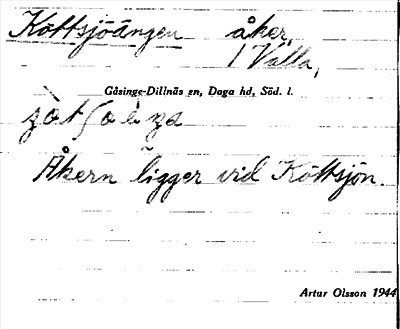 Köttsjöängen åker,
1 Valla,
Gåsinge-Dillnäs sn, Daga hd, Söd. l.
Åkern ligger vid Köttsjön.
Artur Olsson 1944